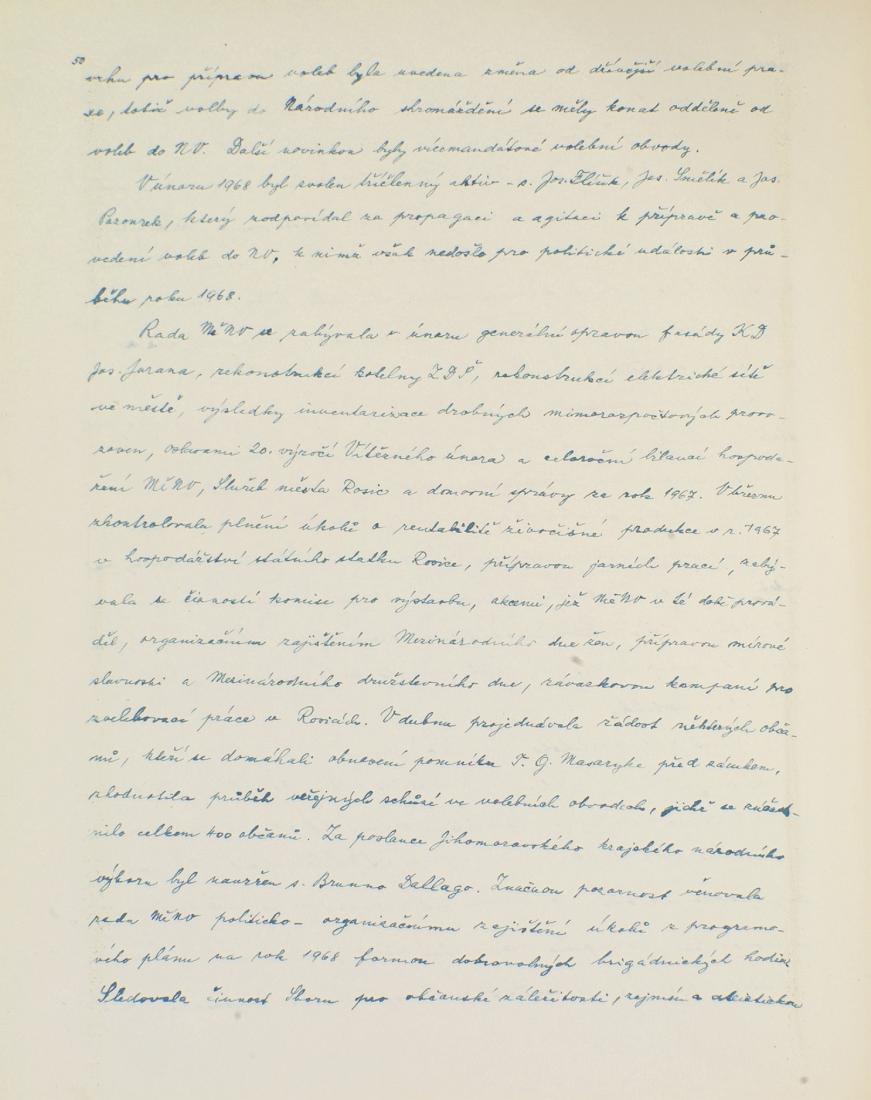 50
vrhu pro přípravu voleb byla uvedena změna od dřívější volební pra-
xe, totiž volby do Národního shromáždění se měly konat odděleně od
voleb do NV. Další novinkou byly vícemandátové volební obvody.
V únoru 1968 byl zvolen tříčlenný aktiv - s. Jos. Jos. Smělík a Jos.
Pazourek, který zodpovídal za propagaci a agitaci k přípravě a pro-
vedení voleb do NV, k nimž však nedošlo pro politické události v prů-
běhu roku 1968.
Rada MěNV se zabývala v únoru generální opravou fasády KD
Jos. Jurana, rekonstrukcí kotelny ZDŠ, rekonstrukcí elektrické sítě
ve městě, výsledky inventarizace drobných mimorozpočtových provo-
zoven, oslavami 20. výročí Vítězného února a celoroční bilancí hospoda-
ření MěNV, Služeb města Rosic a domovní správy za rok 1967. V březnu
zkontrolovala plnění úkolů o rentabilitě živočišné produkce v r. 1967
v hospodářství státního statku Rosice, přípravou jarních prací, zabý-
vala se činností komise pro výstavbu, akcemi, jež MěNV v té době prová-
děl, organizačním zajištěním Mezinárodního dne žen, přípravou mírové
slavnosti a Mezinárodního družstevního dne, závazkovou kampaní pro
zvelebovací práce v Rosicích. V dubnu projednávala žádost některých obča-
nů, kteří se domáhali obnovení pomníku T. G. Masaryka před zámkem,
zhodnotila průběh veřejných schůzí ve volebních obvodech, jichž se zúčast-
nilo celkem 400 občanů. Za poslance Jihomoravského krajského národního
výboru byl navržen s. Brunno Dallago. Značnou pozornost věnovala
rada MěNV politicko-organizačnímu zajištění úkolů z programo-
vého plánu na rok 1968 formou dobrovolných brigádnických hodin.
Sledovala činnost Sboru pro občanské záležitosti, zejména